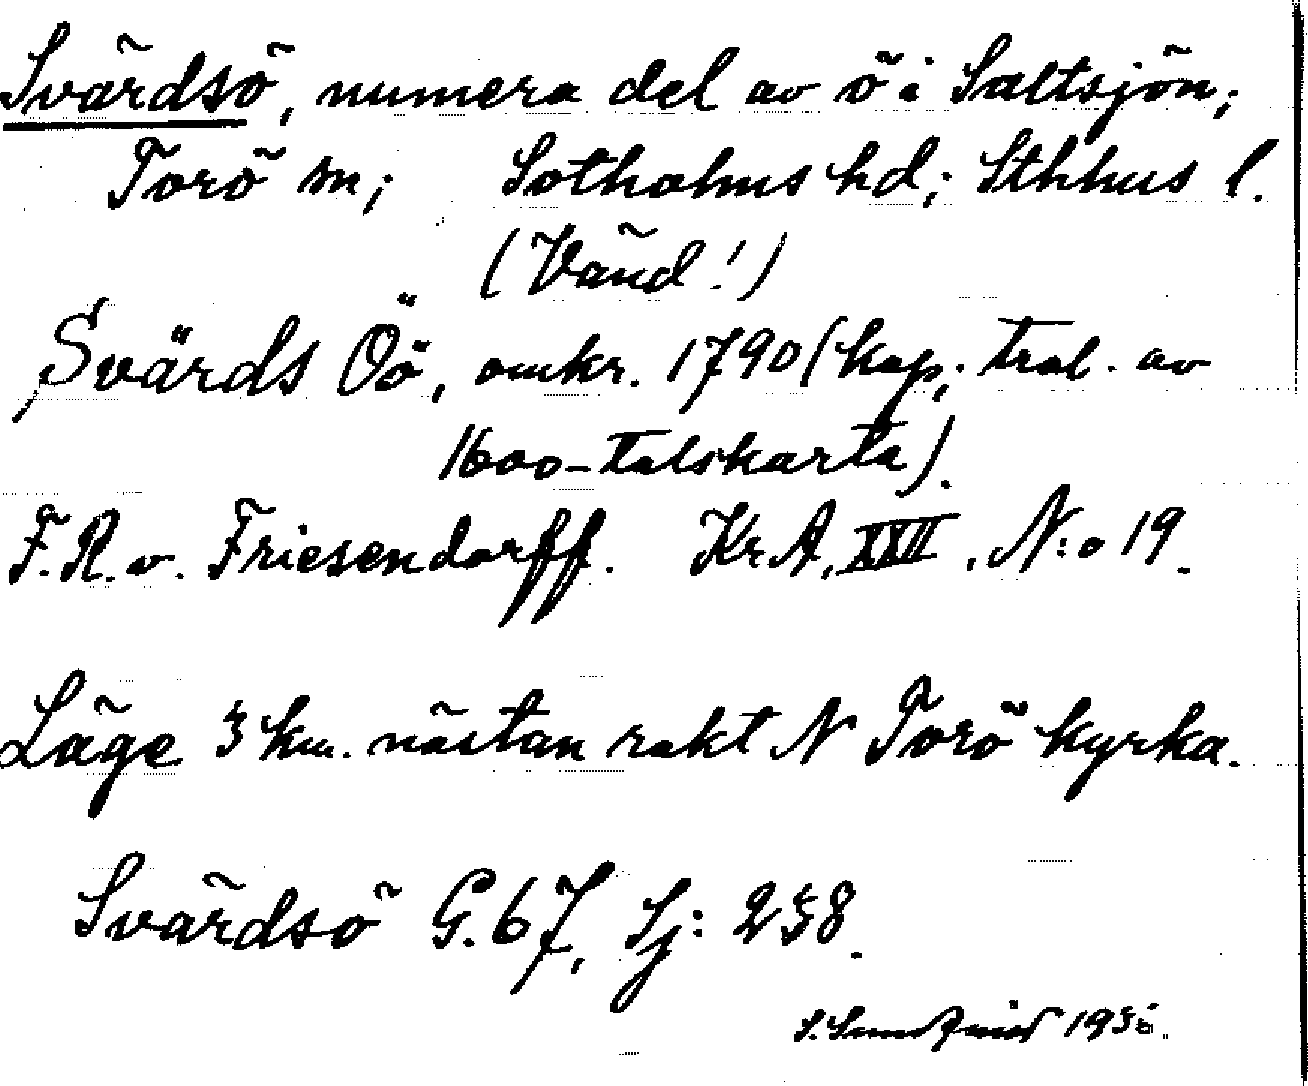 Svärdsö, numera del av ö i Saltsjön;
Torö sn; Sotholms hd; Sthlms l.
(Vänd!)
Svärds Öö, omkr. 1790 (kop; trol. av
1600-talskarta).
F.R. v. Friesendorff. Kr.A, XXII, N:o 19.
Läge 3 km. nästan rakt N Torö kyrka.
Svärdsö G.67, Sj: 238.